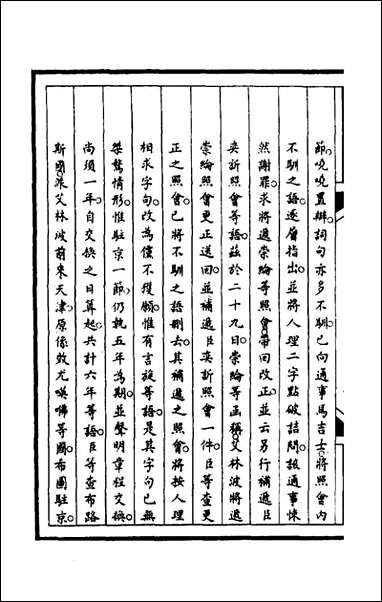 節嘵嘵置辯詞句亦多不馴已向通事馬吉士將照會內
不馴之語逐層指出並將人理二字點破詰問該通事悚
然謝罪求將遞崇綸等照會帶回改正並云另行補遞臣
奕訢照會等語茲於二十九日崇綸等函稱艾林波將遞
崇綸照會更正送回並補遞臣奕訢照會一件臣等查更
正之照會已將不馴之語刪去其補遞之照會將按人理
相求字句改為儻不獲願惟有言旋等語是其字句已無
桀驁情形惟駐京一節仍執五年為期並聲明章程交換
尚須一年自交換之日算起共計六年等語臣等查布路
斯國派艾林波前來天津原係效尤嘆咈等國布圖駐京